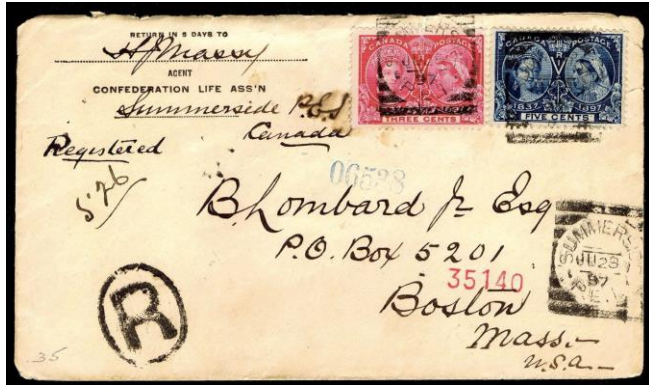 RETURN IN 5 DAYS TO
H J Massy
AGENT
CONFEDERATION LIFE ASS'N
Summerside P.E.I
Canada
Registered
526
CANADA POSTAGE
THREE CENTS
CANADA POSTAGE
1837 1897
FIVE CENTS
06538
B Lombard Jr Esq
P.O. Box 5201
35140
Boston
Mass.
U.S.A.
SUMMERSIDE
JU 29
97
P.E.I.
R
35